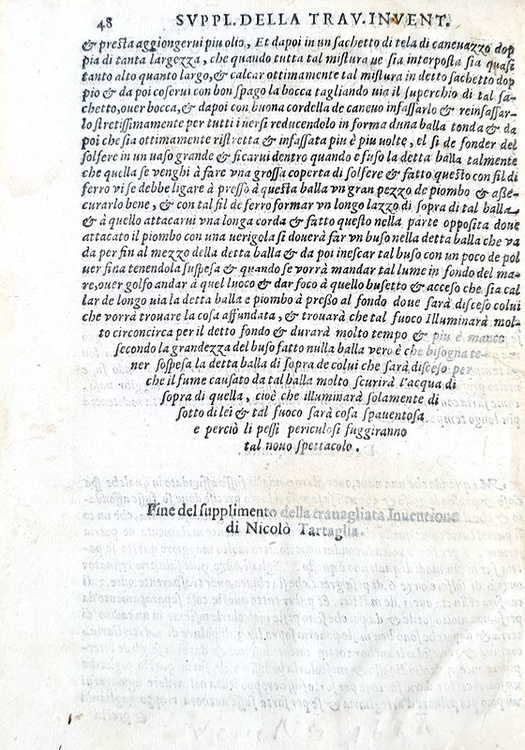 48 SVPPL. DELLA TRAV. INVENT.
& presta aggiongerui piu olio, Et dapoi in un sachetto di tela di caneuazzo dop
pia di tanta largezza, che quando tutta tal mistura ue sia interposta sia quasi
tanto alto quanto largo, & calcar ottimamente tal mistura in detto sachetto dop
pio & da poi coserui con bon spago la bocca tagliando uia il superchio di tal sa-
chetto, ouer bocca, & dapoi con buona cordella de caneuo infassarlo & reinfassar-
lo stretissimamente per tutti i uersi reducendolo in forma duna balla tonda & da
poi che sia ottimamente ristretta & infassata piu è piu uolte, el si de fonder del
solfere in un uaso grande & ficarui dentro quando e fuso la detta balla talmente
che quella se venghi à fare vna grossa coperta di solfere & fatto questo con fil di
ferro vi se debbe ligare à presso à questa balla vn gran pezzo de piombo & asse-
curarlo bene, & con tal fil de ferro formar vn longo lazzo di sopra di tal balla
& à quello attacarui vna longa corda & fatto questo nella parte opposita doue
attacato il piombo con una uerigola si douerà far vn buso nella detta balla che va
da per fin al mezzo della detta balla & da poi inescar tal buso con un poco de pol
uer fina tenendola suspesa & quando se vorrà mandar tal lume in fondo del ma-
re, ouer golfo andar à quel luoco & dar foco à quello busetto & acceso che sia cal
lar de longo uia la detta balla e piombo à presso al fondo doue sarà disceso colui
che vorrà trouare la cosa affundata, & trouarà che tal fuoco Illuminarà mol-
to circoncirca per il detto fondo & durarà molto tempo & piu è manco
secondo la grandezza del buso fatto nulla balla vero è che bisogna te-
ner sospesa la detta balla di sopra de colui che sarà disceso per
che il fume causato da tal balla molto scurirà l'acqua di
sopra di quella, cioè che illuminarà solamente di
sotto di lei & tal fuoco sarà cosa spauentosa
e perciò li pessi periculosi fuggiranno
tal nouo spettacolo.
Fine del supplimento della trauagliata Inuentione
di Nicolò Tartaglia.